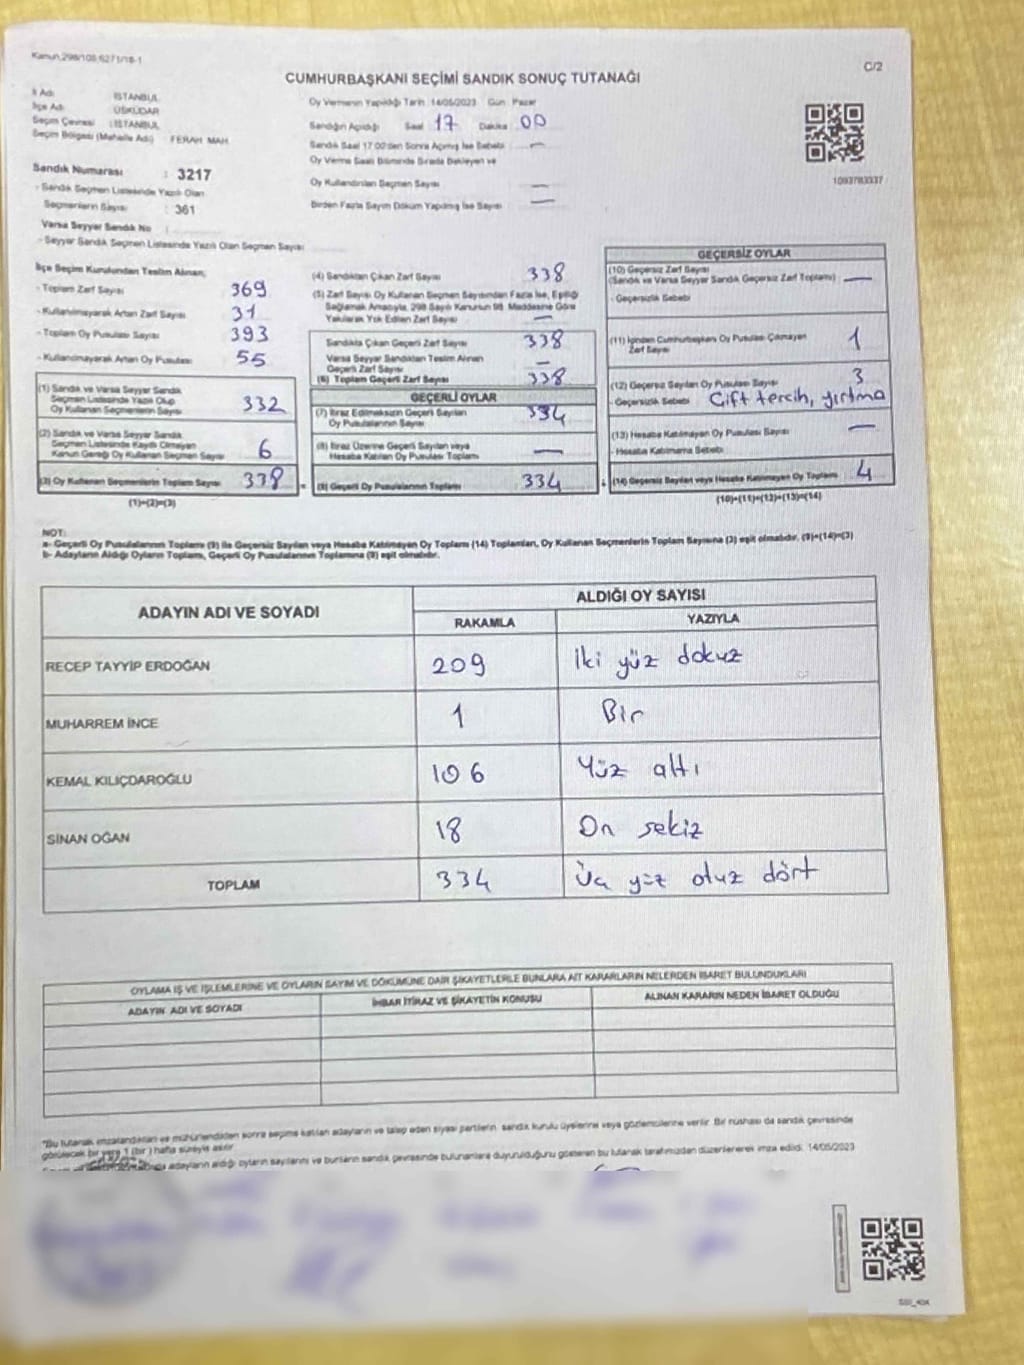 Kanun,298/108;6271/18-1
C/2
CUMHURBAŞKANI SEÇİMİ SANDIK SONUÇ TUTANAĞI
İl Adı İSTANBUL
İlçe Adı ÜSKÜDAR
Seçim Çevresi : İSTANBUL
Seçim Bölgesi (Mahalle Adı) FERAH MAH.
Oy Vermenin Yapıldığı Tarih 14/05/2023 Gün Pazar
Sandığın Açıldığı Saat 17 Dakika 00
Sandık Saat 17.00'den Sonra Açılmış İse Sebebi —
Oy Verme Saati Bitiminde Sırada Bekleyen ve
Oy Kullandırılan Seçmen Sayısı —
Birden Fazla Sayım Döküm Yapılmış İse Sayısı —
1093783337
Sandık Numarası : 3217
- Sandık Seçmen Listesinde Yazılı Olan
Seçmenlerin Sayısı : 361
Varsa Seyyar Sandık No
- Seyyar Sandık Seçmen Listesinde Yazılı Olan Seçmen Sayısı
İlçe Seçim Kurulundan Teslim Alınan;
- Toplam Zarf Sayısı 369
- Kullanılmayarak Artan Zarf Sayısı 31
- Toplam Oy Pusulası Sayısı 393
- Kullanılmayarak Artan Oy Pusulası 55
(1) Sandık ve Varsa Seyyar Sandık
Seçmen Listesinde Yazılı Olup
Oy Kullanan Seçmenlerin Sayısı 332
(2) Sandık ve Varsa Seyyar Sandık
Seçmen Listesinde Kayıtlı Olmayan
Kanun Gereği Oy Kullanan Seçmen Sayısı 6
(3) Oy Kullanan Seçmenlerin Toplam Sayısı 338
(1)+(2)=(3)
(4) Sandıktan Çıkan Zarf Sayısı 338
(5) Zarf Sayısı Oy Kullanan Seçmen Sayısından Fazla İse, Eşitliği
Sağlamak Amacıyla, 298 Sayılı Kanunun 98. Maddesine Göre
Yakılarak Yok Edilen Zarf Sayısı —
Sandıkta Çıkan Geçerli Zarf Sayısı 338
Varsa Seyyar Sandıktan Teslim Alınan
Geçerli Zarf Sayısı —
(6) Toplam Geçerli Zarf Sayısı 338
GEÇERLİ OYLAR
(7) İtiraz Edilmeksizin Geçerli Sayılan
Oy Pusulalarının Sayısı 334
(8) İtiraz Üzerine Geçerli Sayılan veya
Hesaba Katılan Oy Pusulası Toplamı —
(9) Geçerli Oy Pusulalarının Toplamı 334
GEÇERSİZ OYLAR
(10) Geçersiz Zarf Sayısı
(Sandık ve Varsa Seyyar Sandık Geçersiz Zarf Toplamı) —
- Geçersizlik Sebebi
(11) İçinden Cumhurbaşkanı Oy Pusulası Çıkmayan
Zarf Sayısı 1
(12) Geçersiz Sayılan Oy Pusulası Sayısı 3
- Geçersizlik Sebebi Çift tercih, yırtma
(13) Hesaba Katılmayan Oy Pusulası Sayısı —
- Hesaba Katılmama Sebebi
(14) Geçersiz Sayılan veya Hesaba Katılmayan Oy Toplamı 4
(10)+(11)+(12)+(13)=(14)
NOT:
a- Geçerli Oy Pusulalarının Toplamı (9) ile Geçersiz Sayılan veya Hesaba Katılmayan Oy Toplamı (14) Toplamları, Oy Kullanan Seçmenlerin Toplam Sayısına (3) eşit olmalıdır. (9)+(14)=(3)
b- Adayların Aldığı Oyların Toplamı, Geçerli Oy Pusulalarının Toplamına (9) eşit olmalıdır.
ADAYIN ADI VE SOYADI
ALDIĞI OY SAYISI
RAKAMLA YAZIYLA
RECEP TAYYİP ERDOĞAN 209 İki yüz dokuz
MUHARREM İNCE 1 Bir
KEMAL KILIÇDAROĞLU 106 Yüz altı
SİNAN OĞAN 18 On sekiz
TOPLAM 334 Üç yüz otuz dört
OYLAMA İŞ VE İŞLEMLERİNE VE OYLARIN SAYIM VE DÖKÜMÜNE DAİR ŞİKAYETLERLE BUNLARA AİT KARARLARIN NELERDEN İBARET BULUNDUKLARI
ADAYIN ADI VE SOYADI İHBAR İTİRAZ VE ŞİKAYETİN KONUSU ALINAN KARARIN NEDEN İBARET OLDUĞU
*Bu tutanak imzalandıktan ve mühürlendikten sonra seçime katılan adayların ve talep eden siyasi partilerin sandık kurulu üyelerine veya gözlemcilerine verilir. Bir nüshası da sandık çevresinde
görülecek bir yere 1 (bir) hafta süreyle asılır.
adayların aldığı oyların sayılarını ve bunların sandık çevresinde bulunanlara duyurulduğunu gösteren bu tutanak tarafımızdan düzenlenerek imza edildi. 14/05/2023